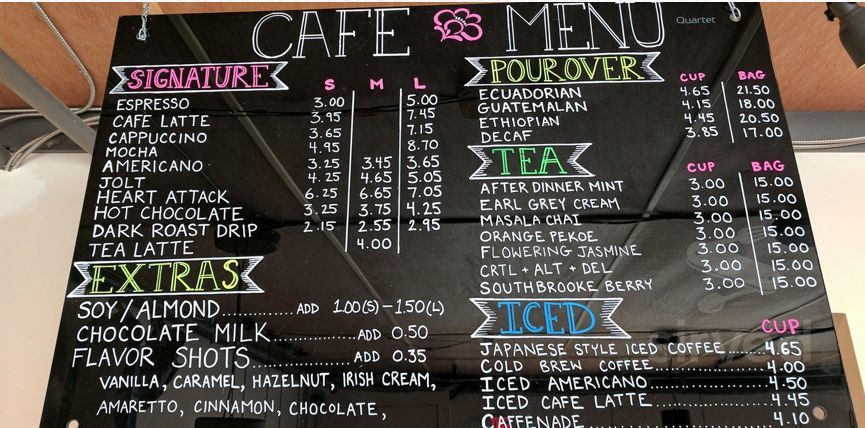 CAFE MENU
Quartet
SIGNATURE S M L
ESPRESSO 3.00 5.00
CAFE LATTE 3.95 7.45
CAPPUCCINO 3.65 7.15
MOCHA 4.95 8.70
AMERICANO 3.25 3.45 3.65
JOLT 4.25 4.65 5.05
HEART ATTACK 6.25 6.65 7.05
HOT CHOCOLATE 3.25 3.75 4.25
DARK ROAST DRIP 2.15 2.55 2.95
TEA LATTE 4.00
EXTRAS
SOY/ALMOND.............. ADD 1.00(S)-1.50(L)
CHOCOLATE MILK.............. ADD 0.50
FLAVOR SHOTS.............. ADD 0.35
VANILLA, CARAMEL, HAZELNUT, IRISH CREAM,
AMARETTO, CINNAMON, CHOCOLATE,
POUROVER CUP BAG
ECUADORIAN 4.65 21.50
GUATEMALAN 4.15 18.00
ETHIOPIAN 4.45 20.50
DECAF 3.85 17.00
TEA CUP BAG
AFTER DINNER MINT 3.00 15.00
EARL GREY CREAM 3.00 15.00
MASALA CHAI 3.00 15.00
ORANGE PEKOE 3.00 15.00
FLOWERING JASMINE 3.00 15.00
CRTL + ALT + DEL 3.00 15.00
SOUTHBROOKE BERRY 3.00 15.00
ICED CUP
JAPANESE STYLE ICED COFFEE.......4.65
COLD BREW COFFEE.......4.00
ICED AMERICANO.......4.50
ICED CAFE LATTE.......4.45
CAFFENADE.......4.10